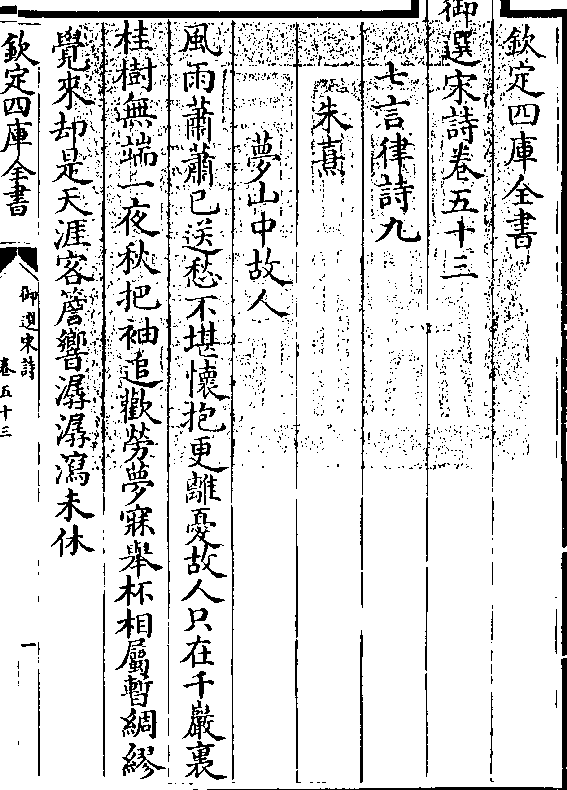 欽定四庫全書
御選宋詩卷五十三
七言律詩九
朱熹
夢山中故人
風雨蕭蕭已送愁不堪懷抱更離憂故人只在千巖裏
桂樹無端一夜秋把袖追歡勞夢寐舉杯相屬暫綢繆
覺來却是天涯客簷響潺潺瀉未休
欽定四庫全書
御選宋詩
卷五十三
一